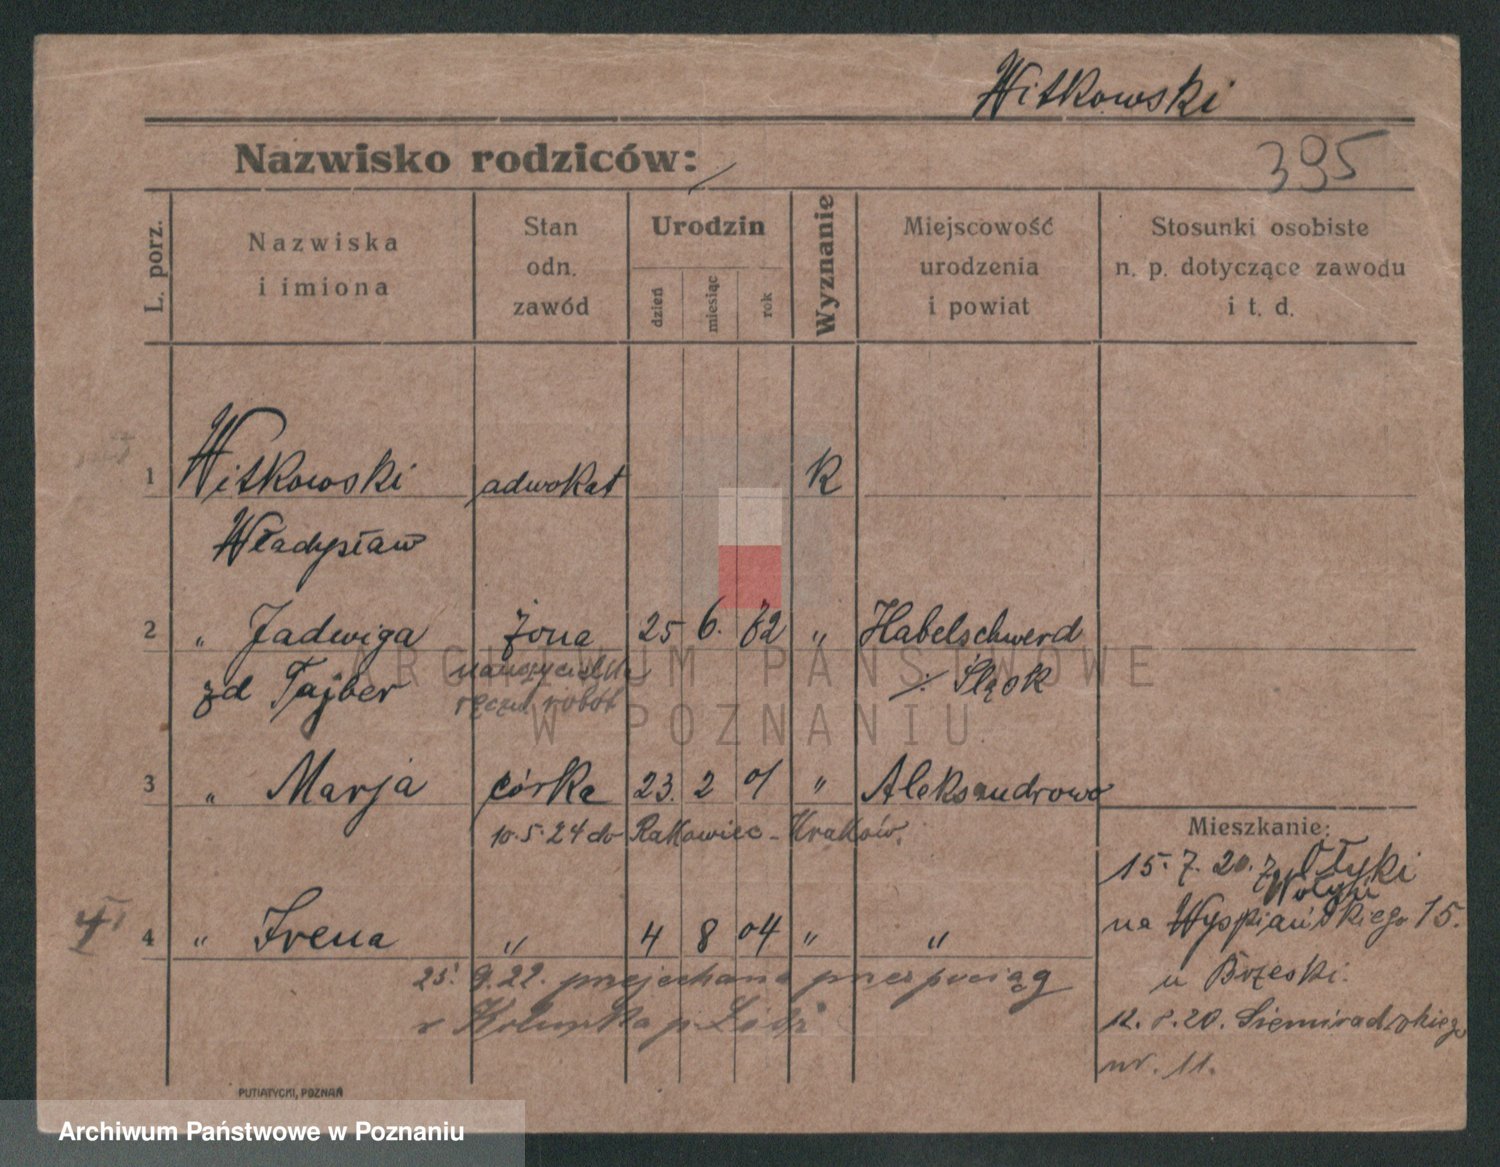 Witkowski
Nazwisko rodziców:
395
L. porz.
Nazwiska
i imiona
Stan
odn.
zawód
Urodzin
dzień
miesiąc
rok
Wyznanie
Miejscowość
urodzenia
i powiat
Stosunki osobiste
n. p. dotyczące zawodu
i t. d.
1 Witkowski adwokat K
Władysław
2 " Jadwiga żona 25 6. 72 " Habelschwerd
zd Tajber nauczycielka ·/· Śląsk
ręczn robót
3 " Marja córka 23. 2 01 " Aleksandrowo
10.5.24 do Rakowiec - Kraków.
Mieszkanie:
15.7.20. z Ołyki
Wołyń
na Wyspiańskiego 15.
u Brzeski.
12.8.20. Siemiradzkiego
nr. 11.
4 " Irena " 4 8 04 " "
25. 9.22. przejechana przez pociąg
PUTIATYCKI, POZNAŃ
ARCHIWUM PAŃSTWOWE
W POZNANIU
Archiwum Państwowe w Poznaniu